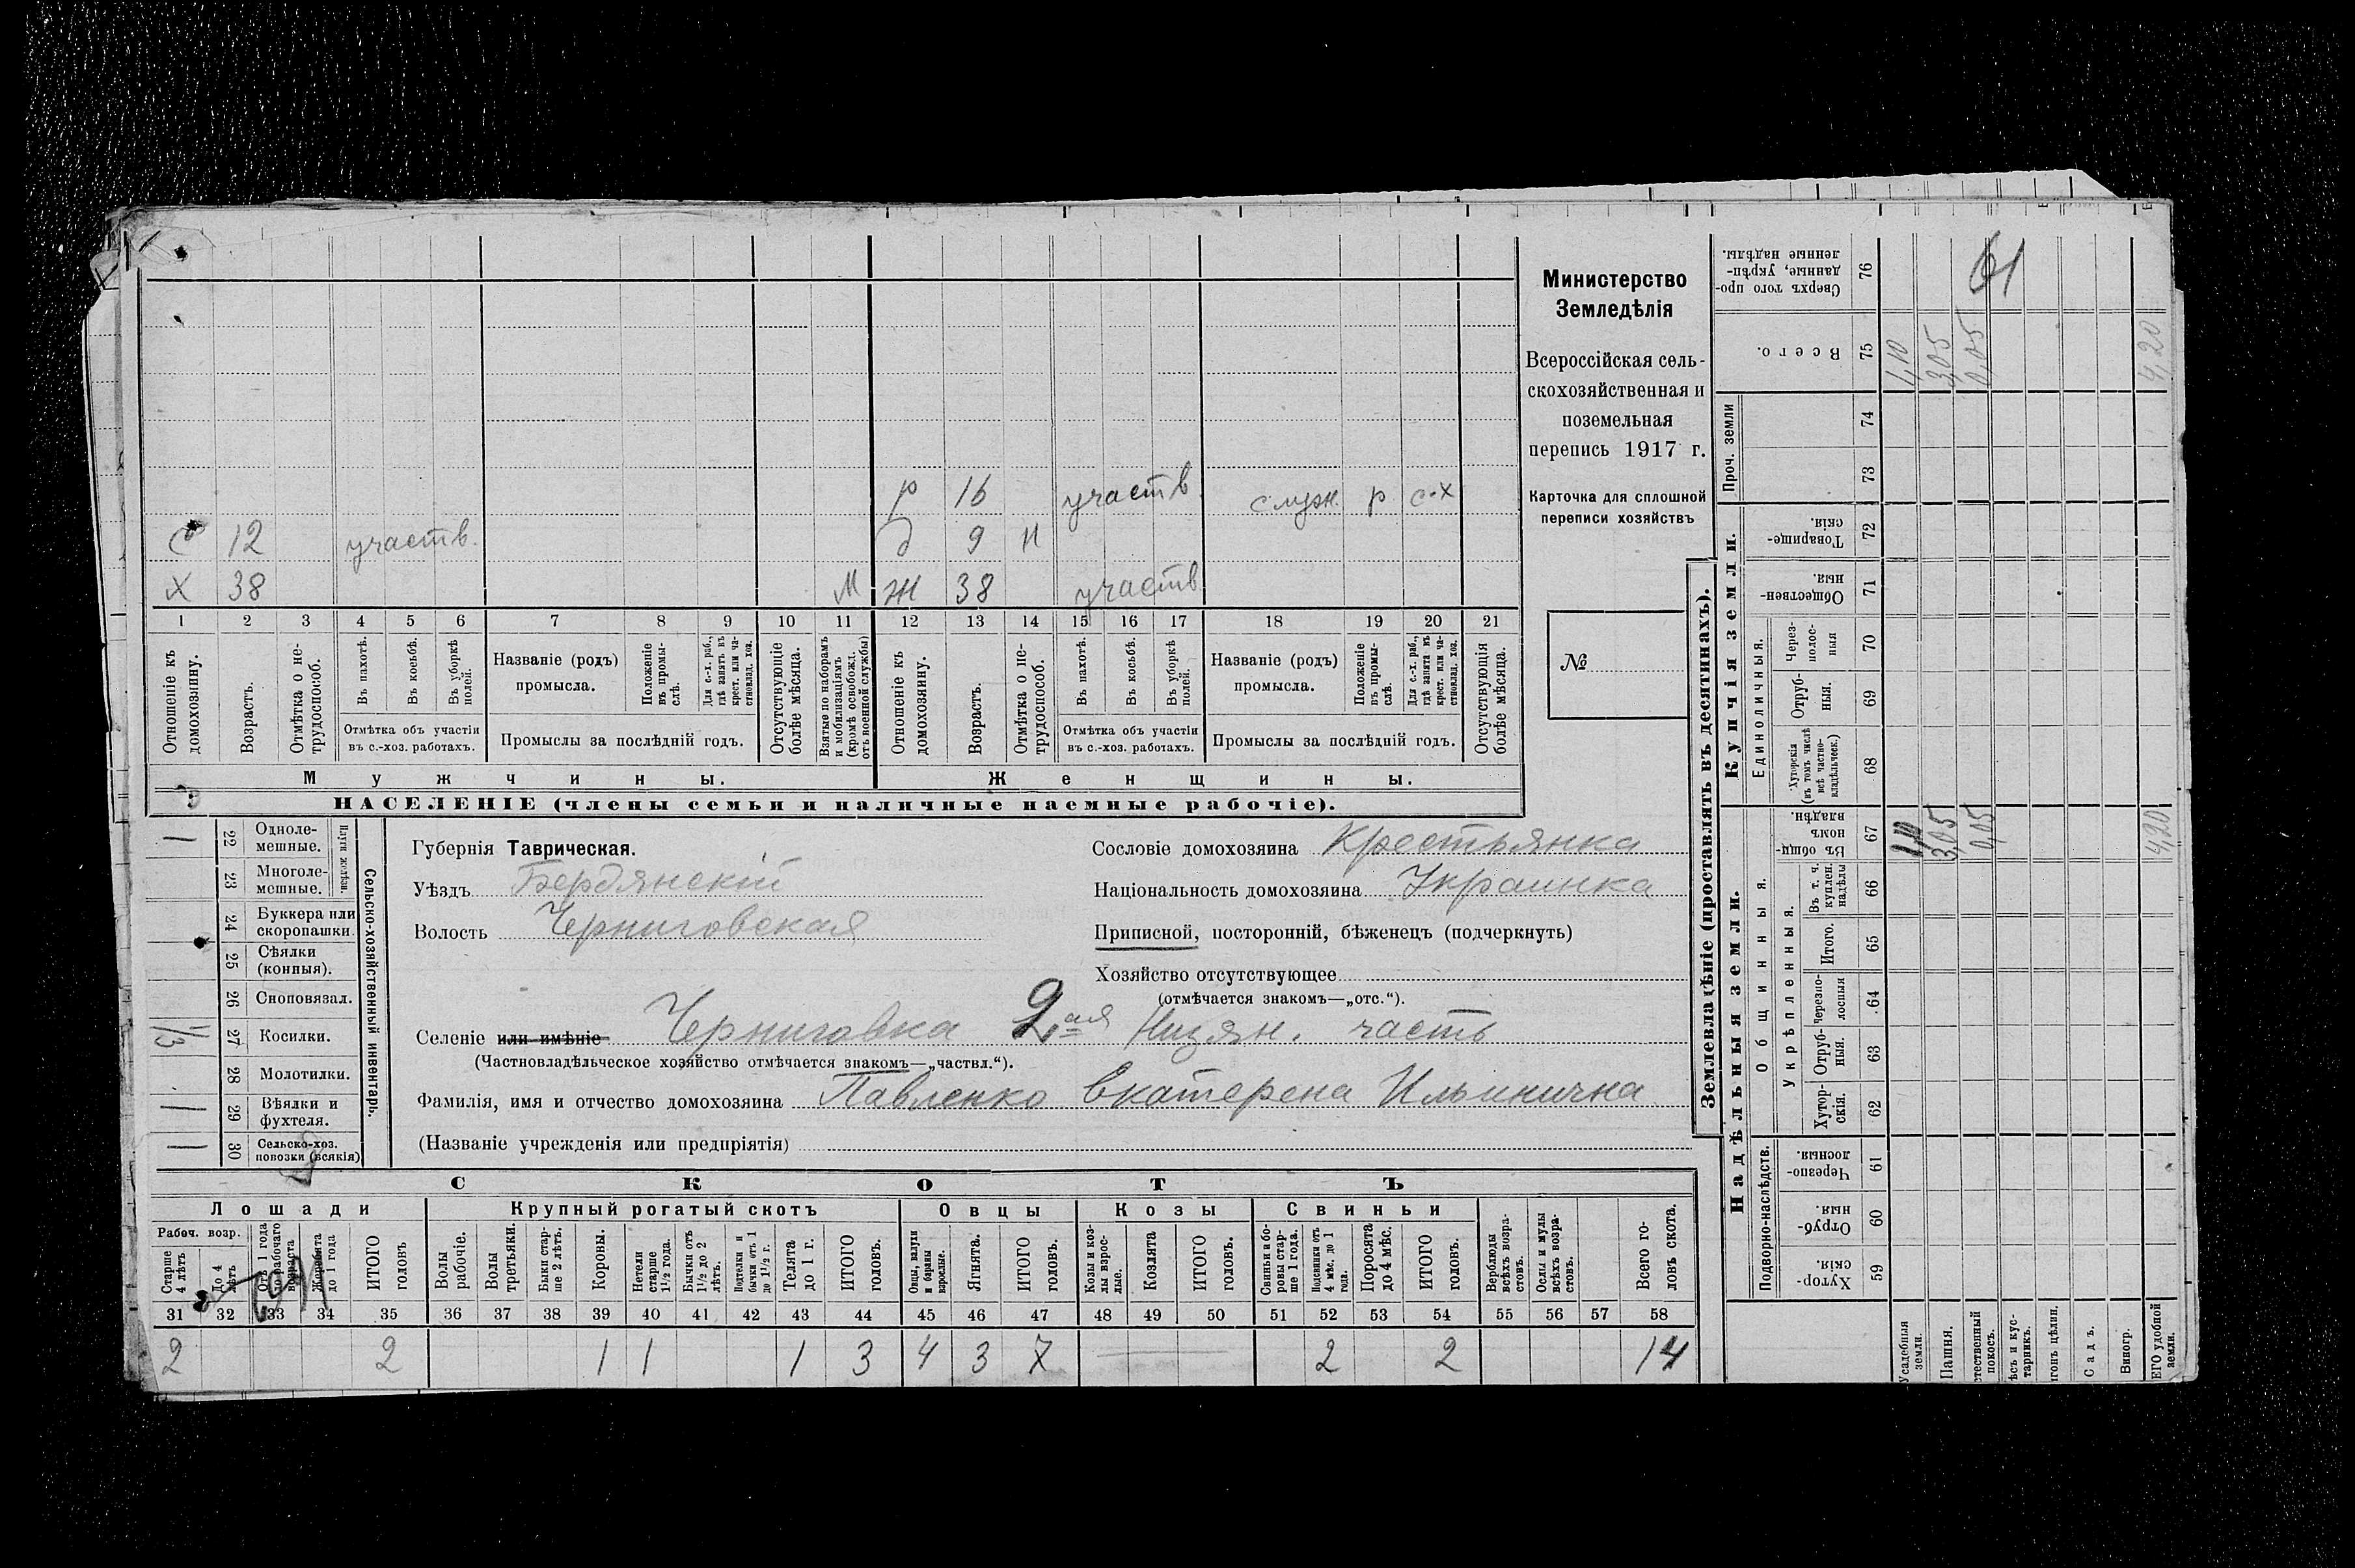 Министерство
Земледѣлія
Всероссійская сель-
скохозяйственная и
поземельная
перепись 1917 г.
Карточка для сплошной
переписи хозяйствъ
№
р 16 участв. служ. р с-х
с 12 участв. д 9 н
х 38 м ж 38 участв
1 2 3 4 5 6 7 8 9 10 11 12 13 14 15 16 17 18 19 20 21
Отношеніе къ домохозяину.
Возрастъ.
Отмѣтка о не-трудоспособ.
Въ пахотѣ.
Въ косьбѣ.
Въ уборкѣ полей.
Отмѣтка объ участіи въ с.-хоз. работахъ.
Названіе (родъ) промысла.
Положеніе въ промы-слѣ.
Для с.-х. раб., гдѣ занятъ въ крест. или ча-стновлад. хоз.
Промыслы за послѣдній годъ.
Отсутствующіе болѣе мѣсяца.
Взятые по наборамъ и мобилизаціямъ (кромѣ освобожд. отъ военной службы)
Отношеніе къ домохозяину.
Возрастъ.
Отмѣтка о не-трудоспособ.
Въ пахотѣ.
Въ косьбѣ.
Въ уборкѣ полей.
Отмѣтка объ участіи въ с.-хоз. работахъ.
Названіе (родъ) промысла.
Положеніе въ промы-слѣ.
Для с.-х. раб., гдѣ занята въ крест. или ча-стновлад. хоз.
Промыслы за послѣдній годъ.
Отсутствующія болѣе мѣсяца.
Мужчины. Женщины.
НАСЕЛЕНІЕ (члены семьи и наличные наемные рабочіе).
Сельско-хозяйственный инвентарь.
Плуги желѣзн.
22 Одноле-мешные. 1
23 Многоле-мешные.
24 Буккера или скоропашки.
25 Сѣялки (конныя).
26 Сноповязал.
27 Косилки. 1/3
28 Молотилки.
29 Вѣялки и фухтеля. 1
30 Сельско-хоз. повозки (всякія) 1
Губернія Таврическая.
Уѣздъ Бердянскій
Волость Черниговская
Сословіе домохозяина Крестьянка
Національность домохозяина Украинка
Приписной, посторонній, бѣженецъ (подчеркнуть)
Хозяйство отсутствующее
(отмѣчается знакомъ—„отс.“).
Селеніе или имѣніе Черниговка 2ая Низян. часть
(Частновладѣльческое хозяйство отмѣчается знакомъ—„частвл.“).
Фамилія, имя и отчество домохозяина Павленко Екатерена Ильинична
(Названіе учрежденія или предпріятія)
СКОТЪ
Лошади Крупный рогатый скотъ Овцы Козы Свиньи
Рабоч. возр.
Старше 4 лѣтъ
До 4 лѣтъ
Отъ 1 года до рабочаго возраста
Жеребята до 1 года
ИТОГО головъ
Волы рабочіе.
Волы третьяки.
Быки стар-ше 2 лѣтъ.
Коровы.
Нетели старше 1½ года.
Бычки отъ 1½ до 2 лѣтъ.
Подтелки и бычки отъ 1 до 1½ г.
Телята до 1 г.
ИТОГО головъ.
Овцы, валухи и бараны взрослые.
Ягнята.
ИТОГО головъ.
Козы и коз-лы взрос-лые.
Козлята
ИТОГО головъ.
Свиньи и бо-ровы стар-ше 1 года.
Подсвинки отъ 4 мѣс. до 1 года.
Поросята до 4 мѣс.
ИТОГО головъ.
Верблюды всѣхъ возра-стовъ.
Ослы и мулы всѣхъ возра-стовъ.
Всего го-ловъ скота.
31 32 33 34 35 36 37 38 39 40 41 42 43 44 45 46 47 48 49 50 51 52 53 54 55 56 57 58
2 2 1 1 1 3 4 3 7 2 2 14
Землевладѣніе (проставлять въ десятинахъ).
Надѣльныя земли. Купчія земли. Проч. земли
Подворно-наслѣдств. Общинныя. Укрѣпленныя. Единоличныя.
Хутор-скія. 59
Отруб-ныя. 60
Черезпо-лосныя. 61
Хутор-скія. 62
Отруб-ныя. 63
Черезпо-лосныя 64
Итого. 65
Въ т. ч. куплен. надѣлы 66
Въ общи-номъ владѣн. 67
Хуторскія (въ томъ числѣ всѣ частно-владѣльческ.) 68
Отруб-ныя. 69
Через-полос-ныя 70
Обществен-ныя. 71
Товарище-скія. 72
73
74
Всего. 75
Сверхъ того про-данные, укрѣп-ленные надѣлы. 76
61
Усадебныя земли. 1,10 1,10
Пашня. 3,05 3,05
тественный покосъ. 0,05 0,05
ѣсъ и кус-тарникъ.
гонъ цѣлин.
Садъ.
Виногр.
ЕГО удобной земли. 4,20 4,20